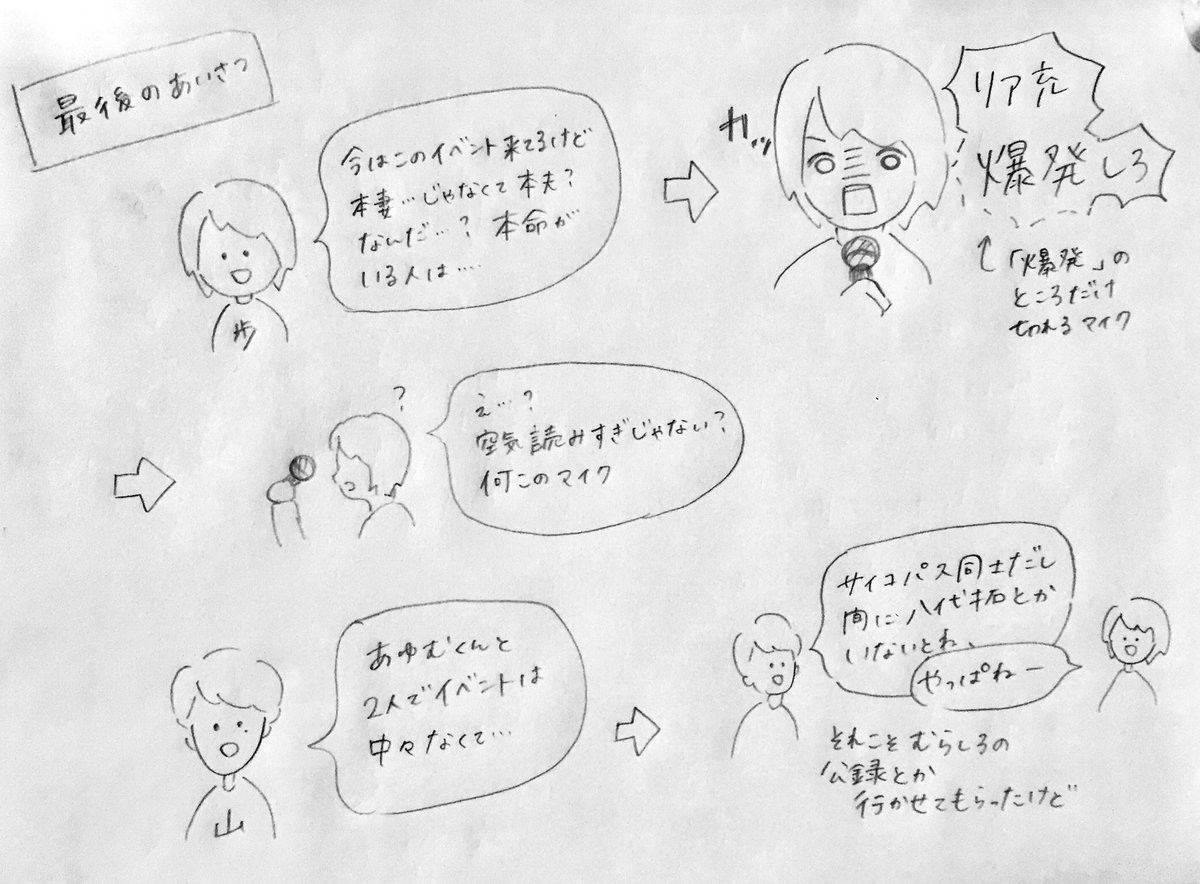 最後のあいさつ
今はこのイベント来てるけど
本妻…じゃなくて本夫?
なんだ…? 本命が
いる人は….
歩
カッ
リア充
爆発しろ
「爆発」の
ところだけ
切れるマイク
?
え…?
空気読みすぎじゃない?
何このマイク
あゆむくんと
2人でイベントは
中々なくて…
山
サイコパス同士だし
間にハイセ拓とか
いないとね、
やっぱねー
それこそむらしろの
公録とか
行かせてもらったけど